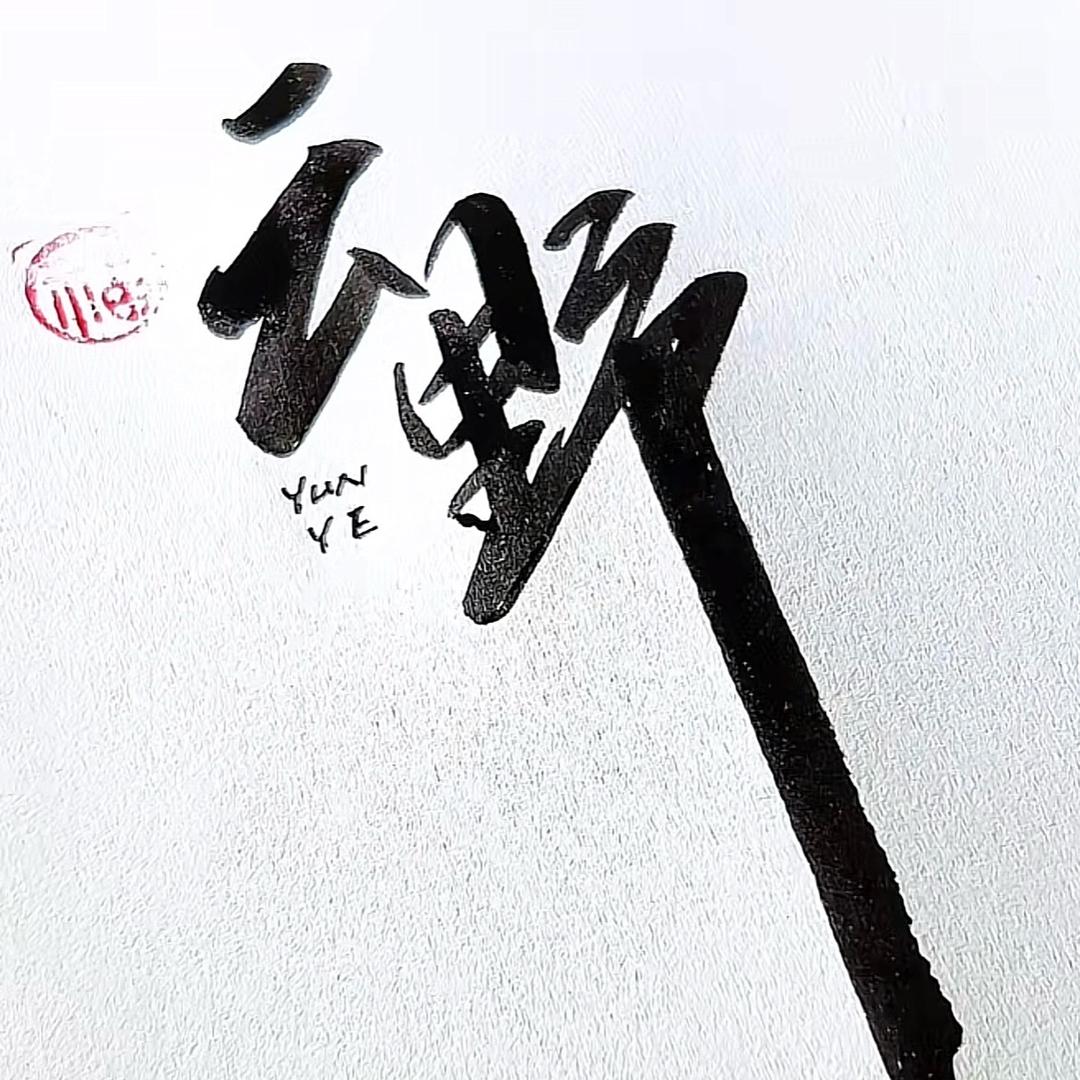 云野
YUN
YE